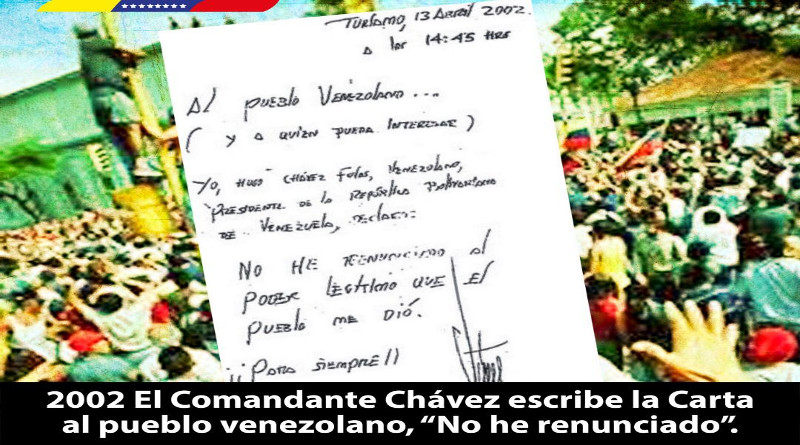 TURIAMO, 13 ABRIL 2002.
A las 14:45 HRS
Al pueblo Venezolano...
( y a quien pueda interesar )
Yo, Hugo Chávez Frías, venezolano,
Presidente de la República Bolivariana
de Venezuela, declaro:
No he renunciado al
poder legítimo que el
pueblo me dió.
¡¡Para siempre!!
2002 El Comandante Chávez escribe la Carta
al pueblo venezolano, “No he renunciado”.